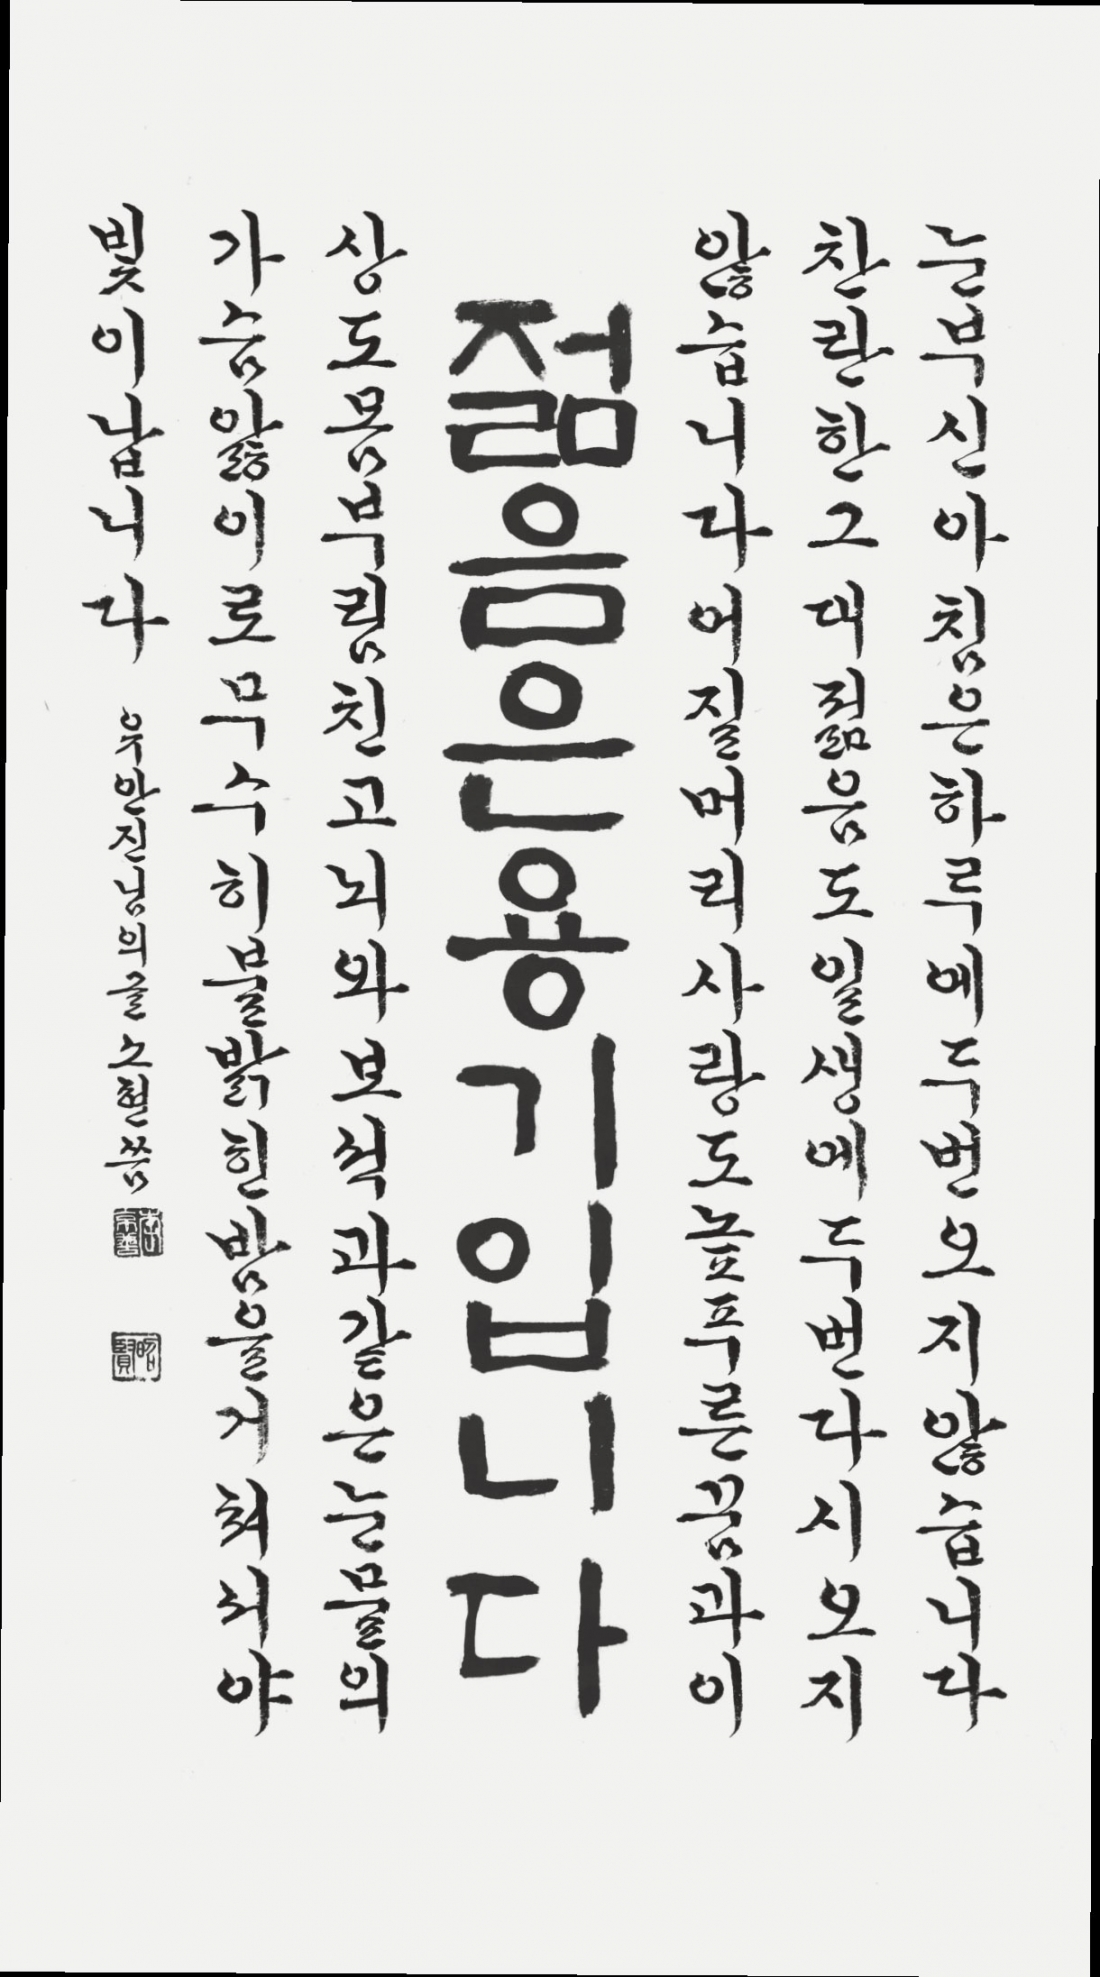 눈부신아침은하루에두번오지않습니다
찬란한그대젊음도일생에두번다시오지
않습니다어질머리사랑도높푸른꿈과이
젊음은용기입니다
상도몸부림친고뇌와보석과같은눈물의
가슴앓이로무수히불밝힌밤을거쳐서야
빛이납니다
우안진님의글소현씀
昭賢